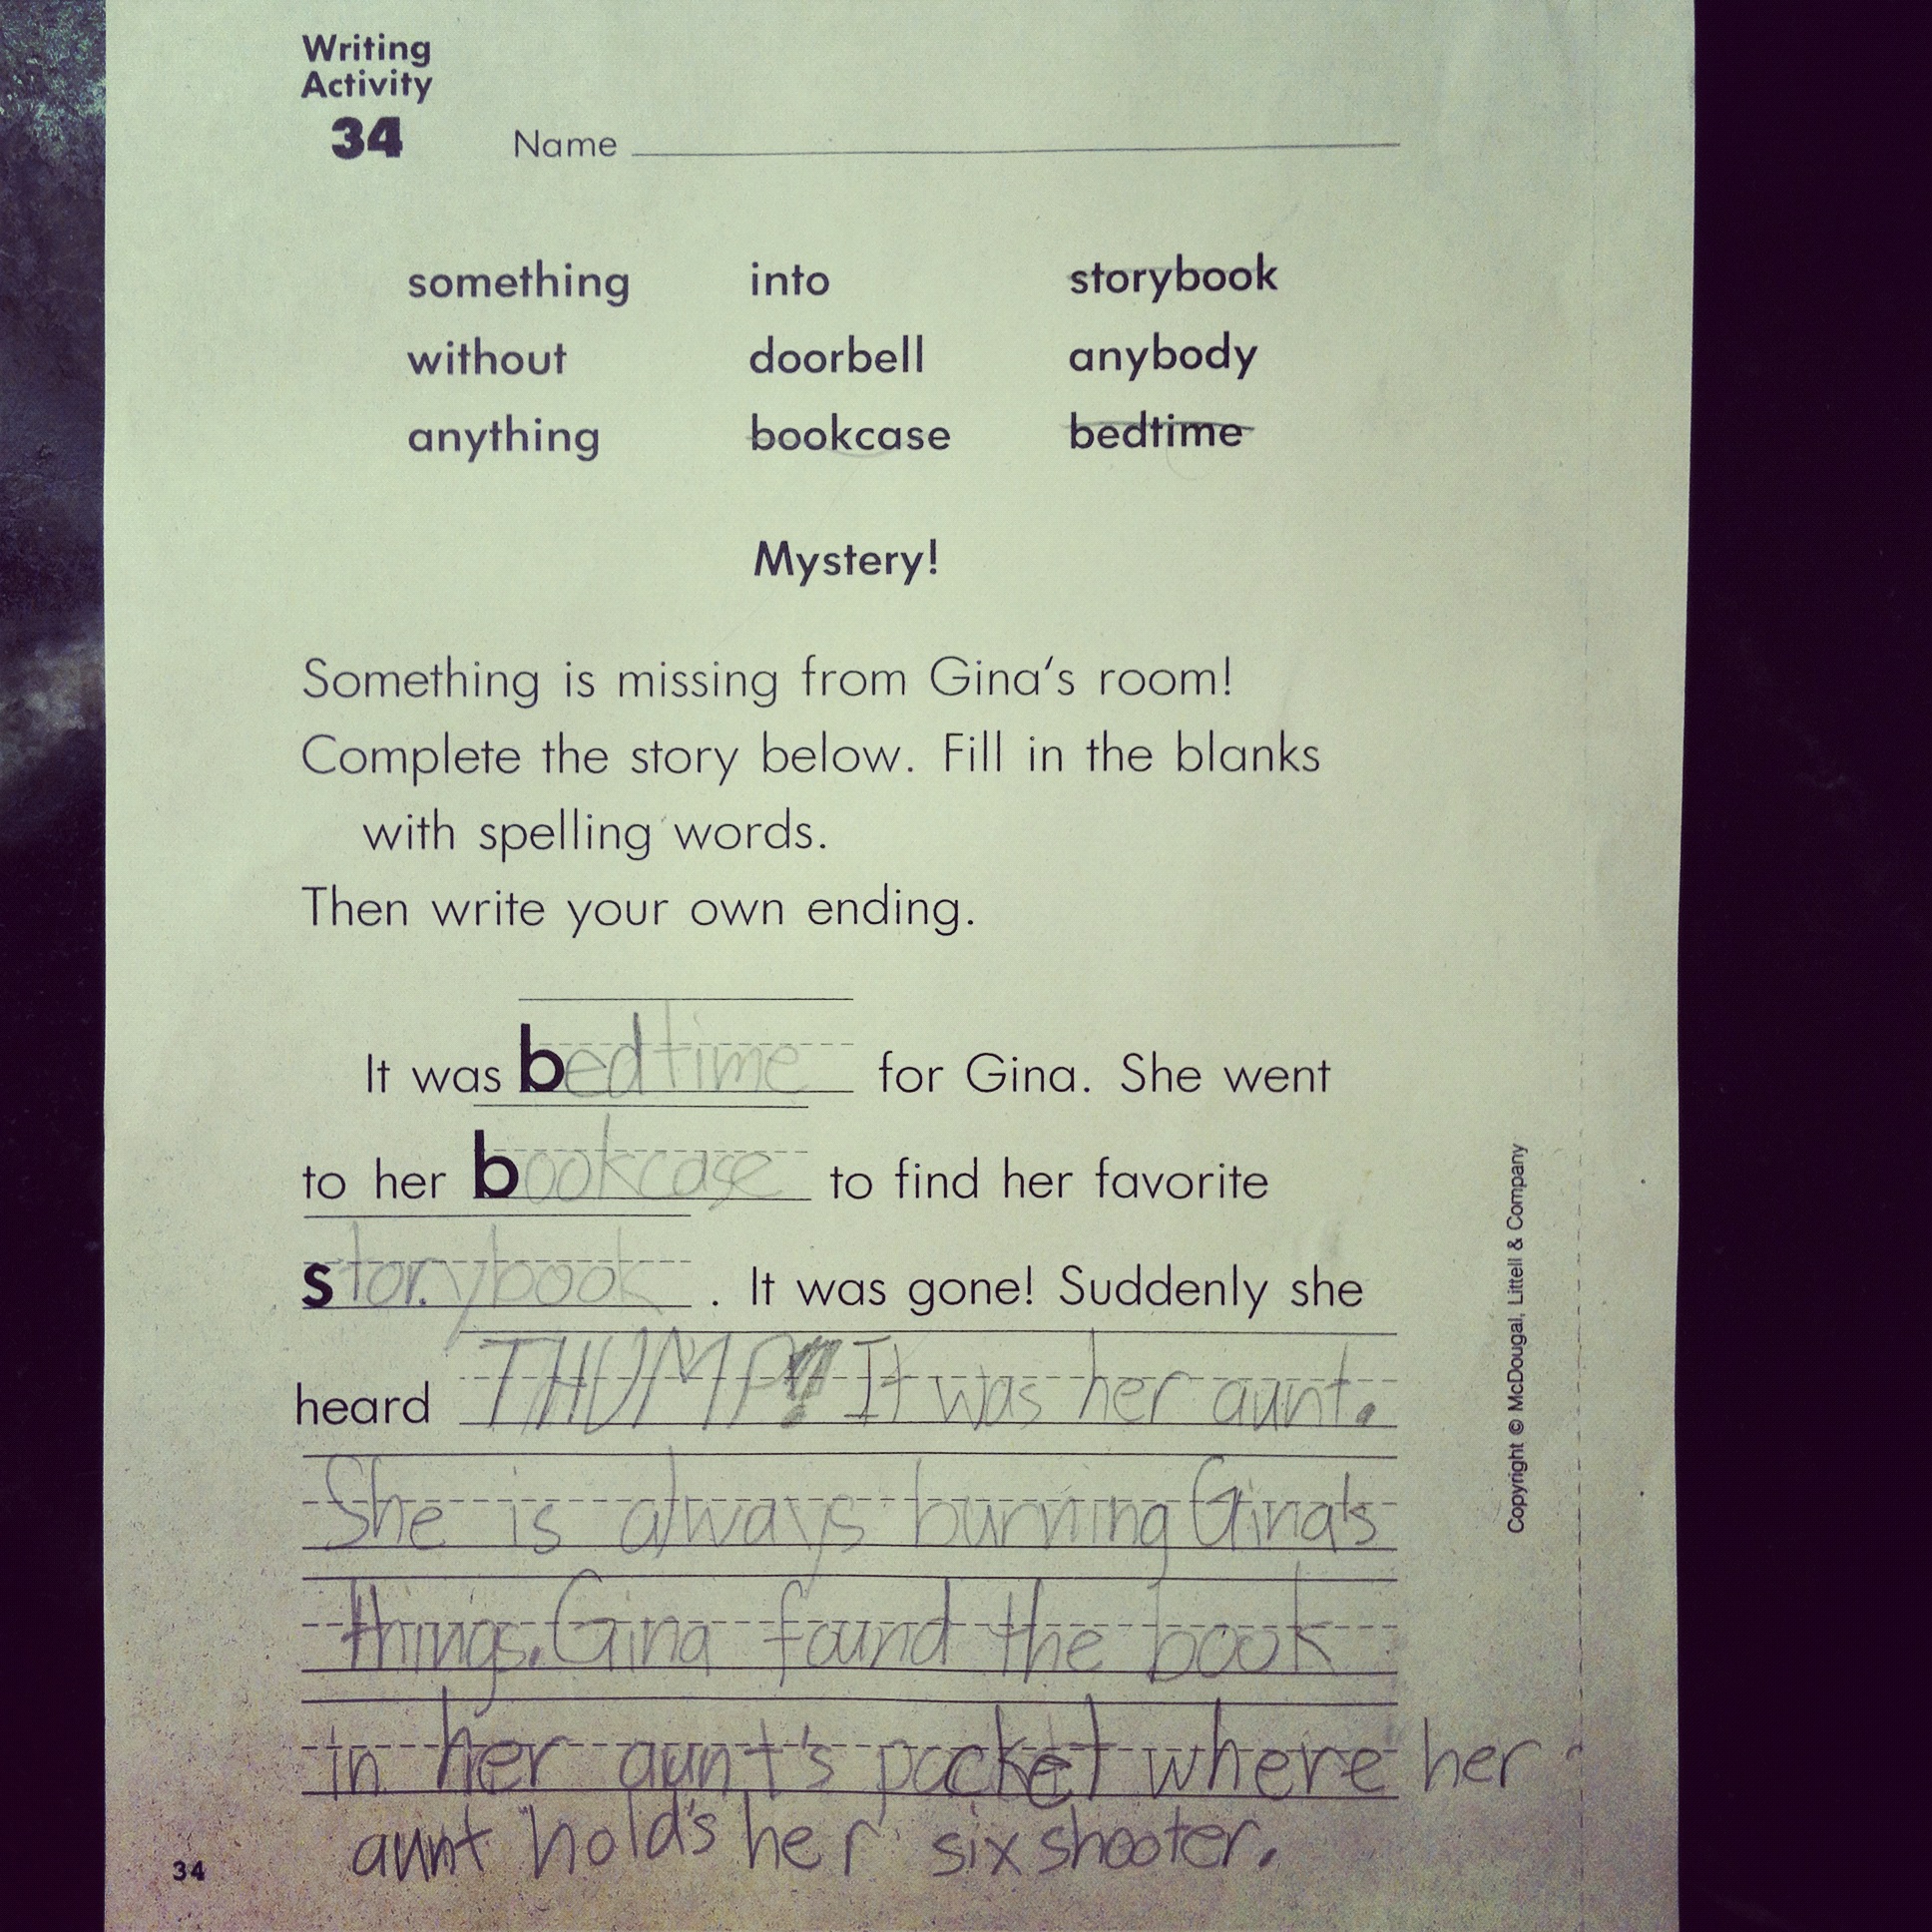 Writing
Activity
34 Name
something into storybook
without doorbell anybody
anything bookcase bedtime
Mystery!
Something is missing from Gina's room!
Complete the story below. Fill in the blanks
with spelling words.
Then write your own ending.
It was bedtime for Gina. She went
to her bookcase to find her favorite
storybook . It was gone! Suddenly she
heard THUMP! It was her aunt.
She is always burning Gina's
things. Gina found the book
in her aunt's pocket where her
aunt hold's her six shooter.
34
Copyright © McDougal, Littell & Company